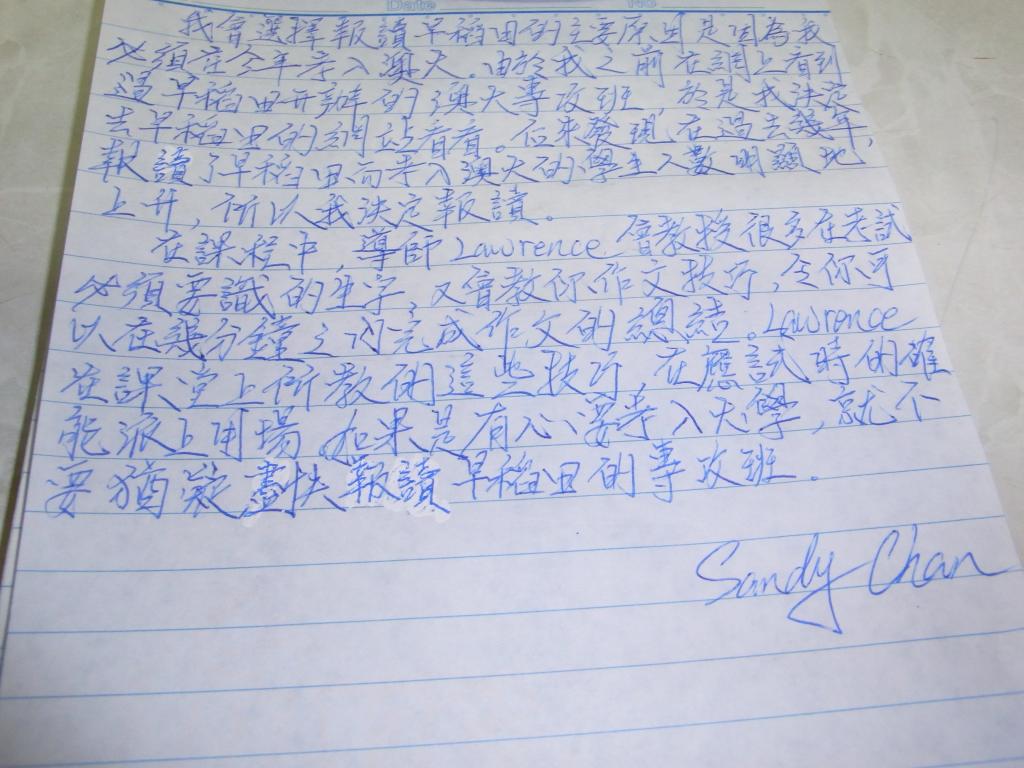 Date No
我會選擇報讀早稻田的主要原因是因為我
必須在今年考入澳大。由於我之前在網上看到
過早稻田開辦的澳大專攻班,於是我決定
去早稻田的網站看看。後來發現在過去幾年,
報讀了早稻田而考入澳大的學生人數明顯地
上升,所以我決定報讀。
在課程中,導師Lawrence 會教授很多在考試
必須要識的生字,又會教你作文技巧,令你可
以在幾分鐘之內完成作文的總結。Lawrence
在課堂上所教的這些技巧,在應試時的確
能派上用場。如果是有心要考入大學,就不
要猶疑盡快報讀早稻田的專攻班.
Sandy Chan